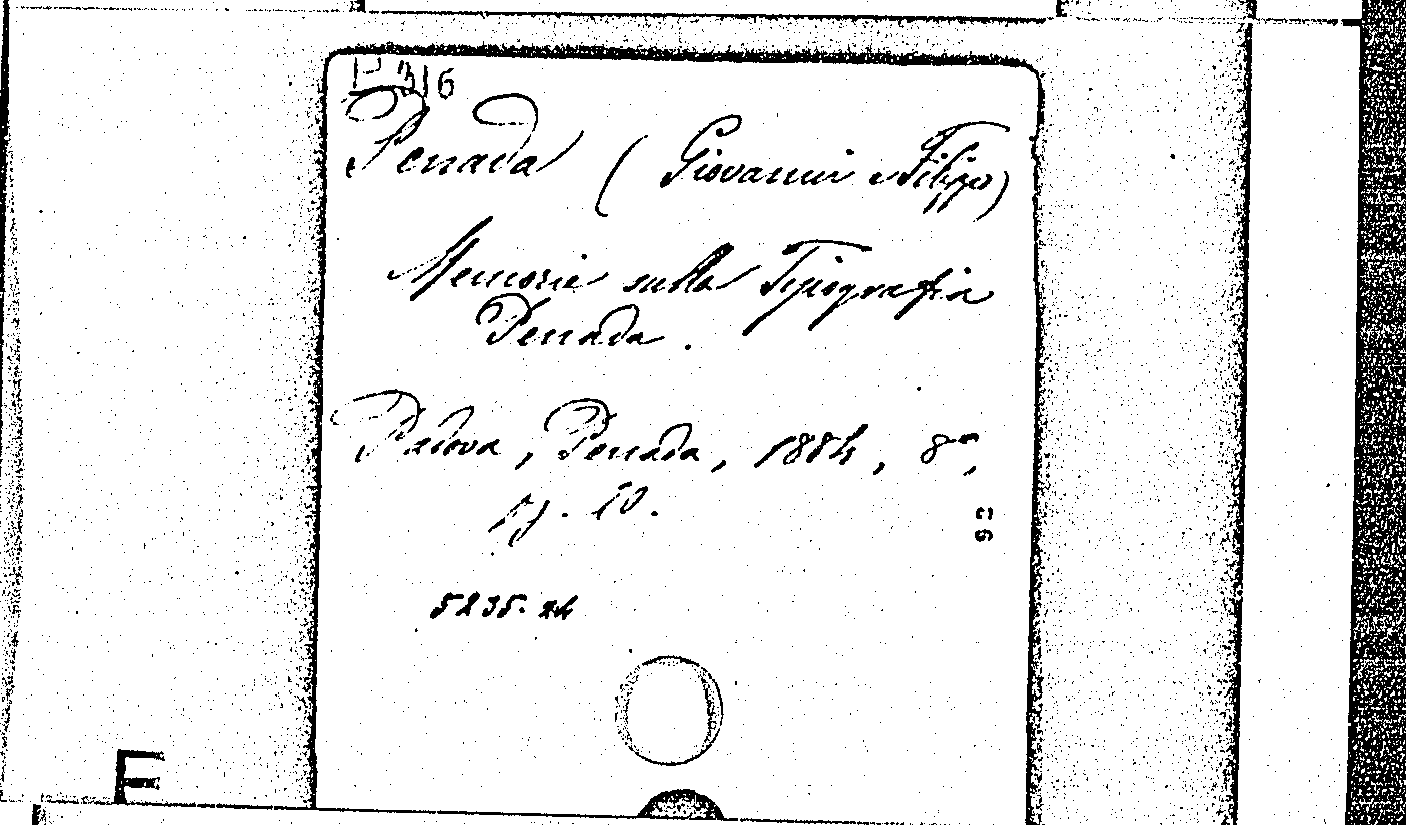 316
Penada (Giovanni e Filippo)
Memorie sulla Tipografia
Penada.
Padova, Penada, 1884, 8°,
pg. 10.
5235. 24
E